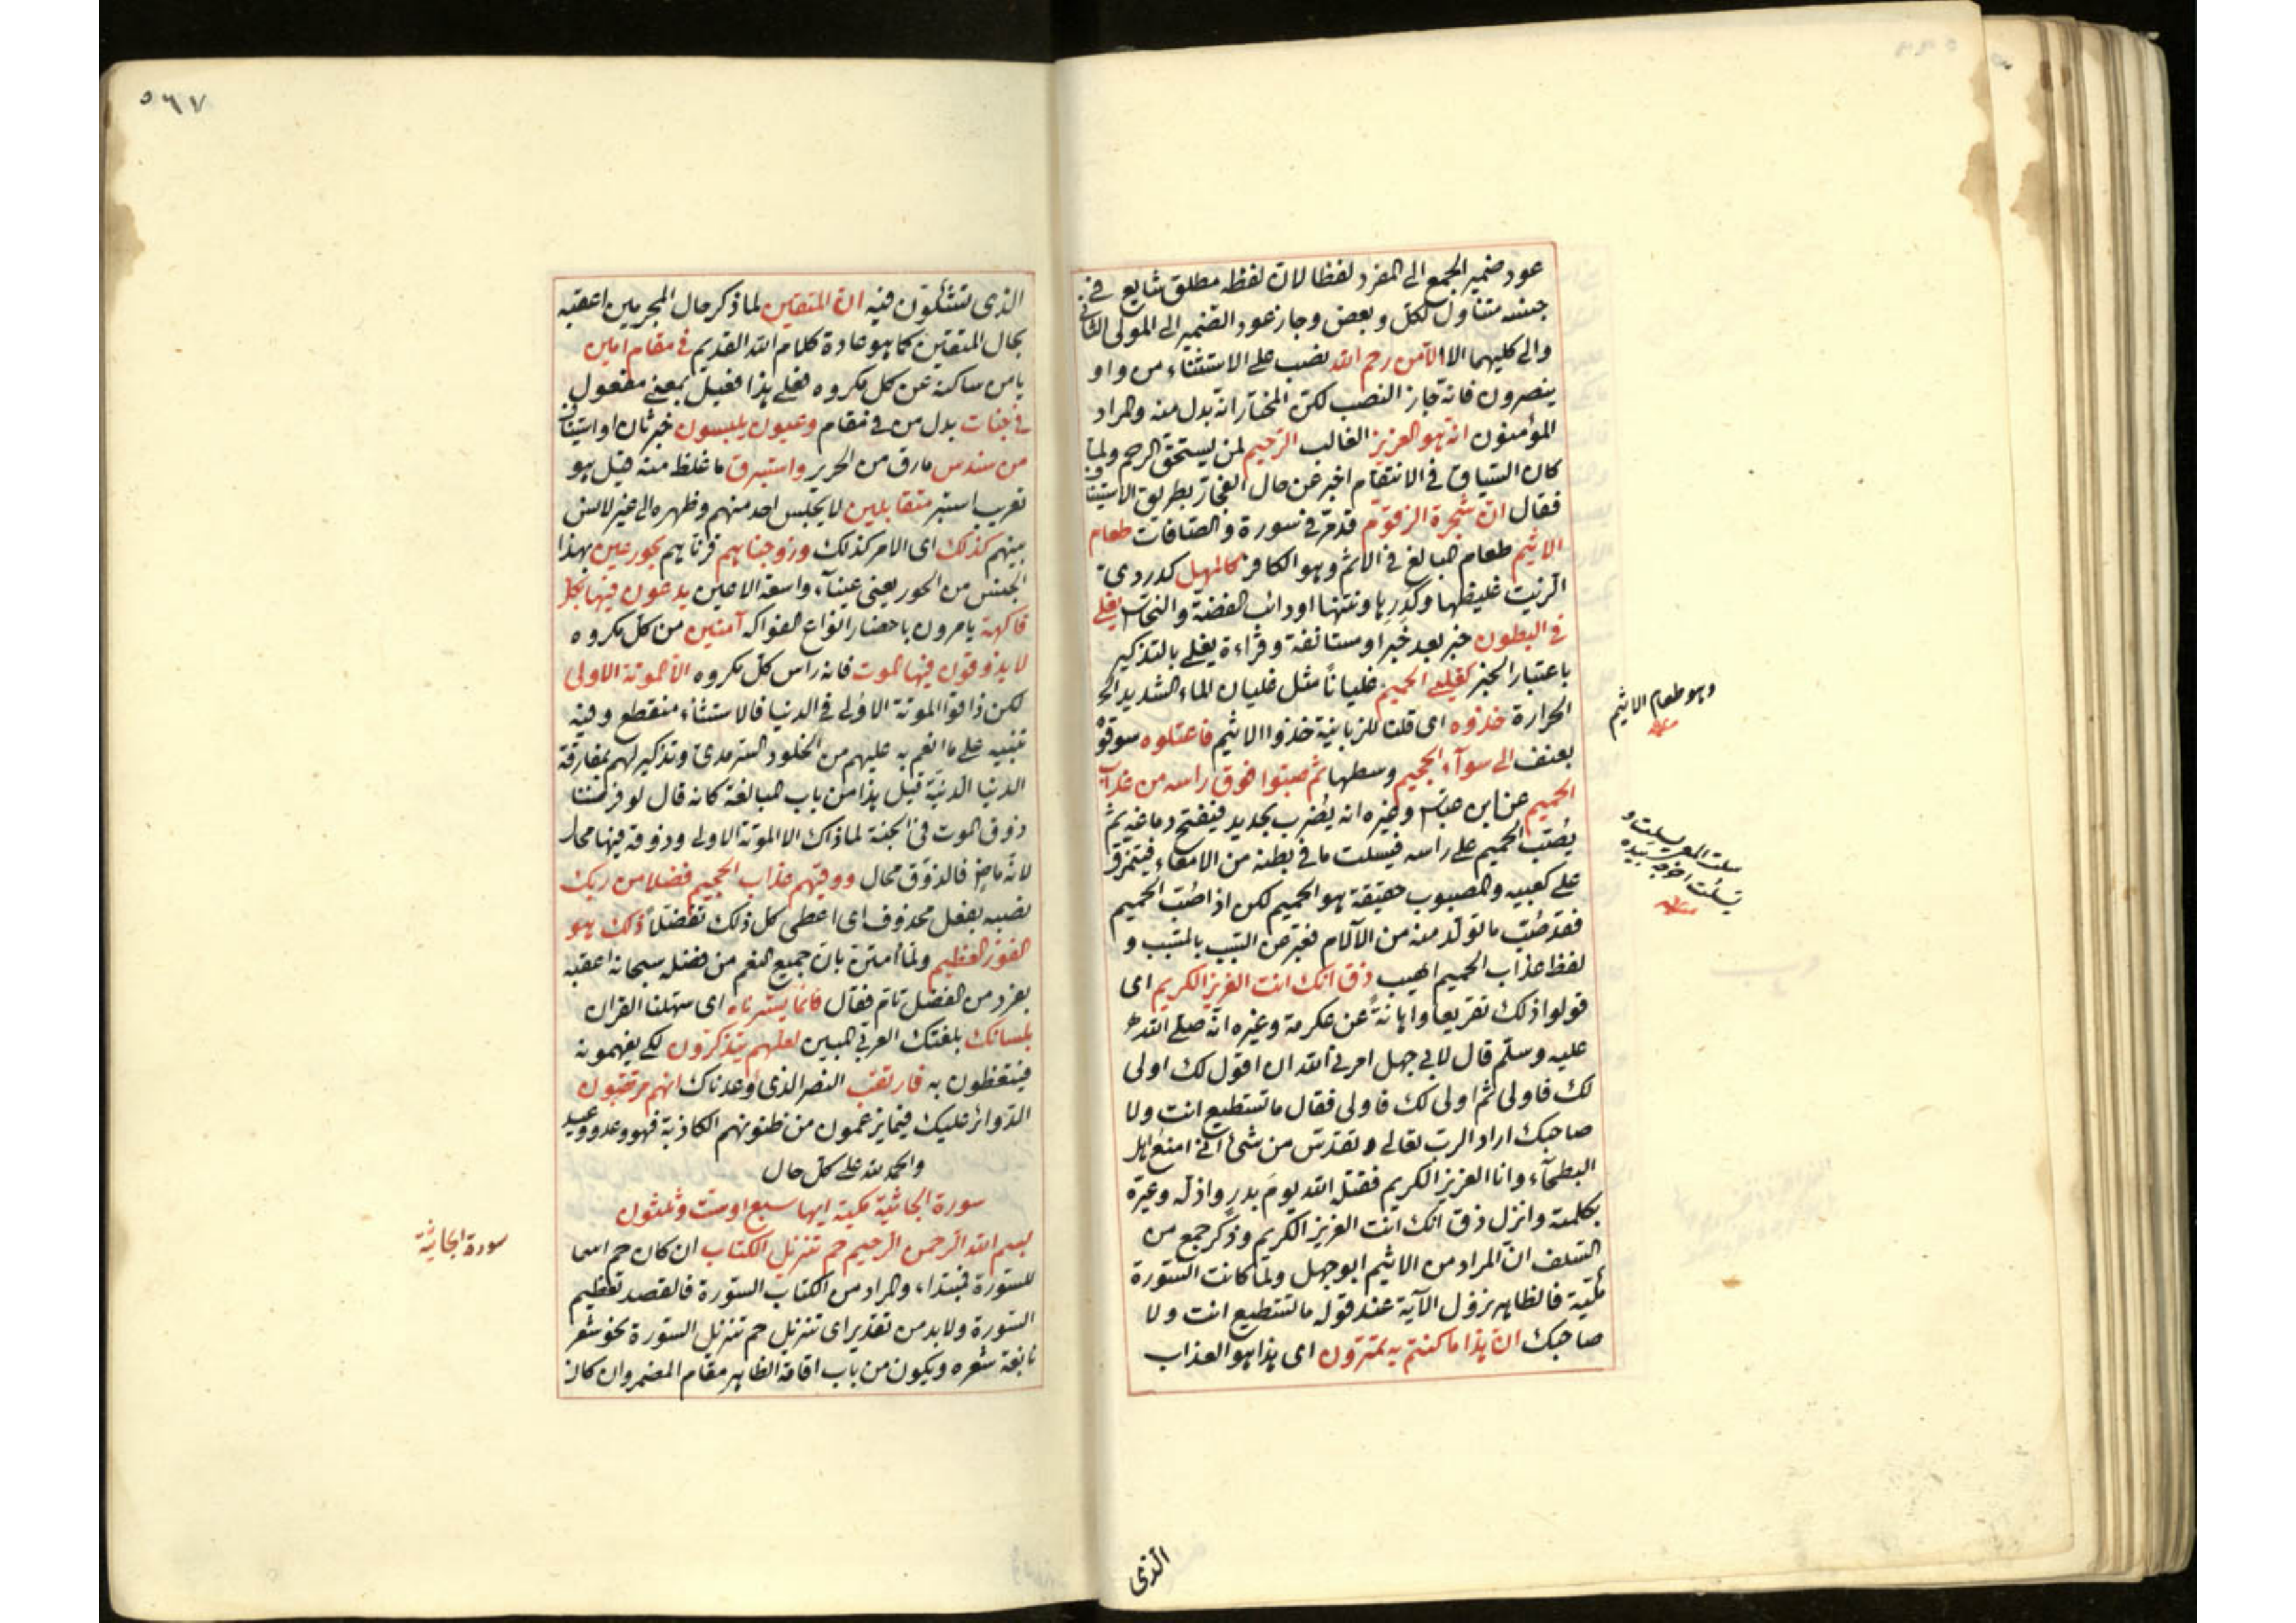 عود ضمير الجمع الى المفرد لفظا لان لفظه مطلق شايع في
جنسه متناول لكل وبعض وجاز عود الضمير الى المولى الثاني
والى كليهما الا الا من رحم الله نصب على الاستثناء من واو
ينصرون فانه جاز النصب لكن المختار انه بدل منه والمراد
المؤمنون انه هو العزيز الغالب الرحيم لمن يستحق الرحم ولما
كان السياق في الانتقام اخبر عن حال الفجار بطريق الاستيناف
فقال ان شجرة الزقوم قد مر في سورة والصافات طعام
الاثيم طعام المبالغ في الاثم وهو الكافر كالمهل كدردى
الزيت غليظها وكدرها ونتنها او ذائب الفضة والنحاس يغلى
في البطون خبر بعد خبر او مستانفة وقراءة يغلى بالتذكير
باعتبار الخبر كغلي الحميم غليانا مثل غليان الماء الشديد
الحرارة خذوه اى قلنا للزبانية خذوا الاثيم فاعتلوه سوقوه
بعنف الى سوآء الجحيم وسطها ثم صبوا فوق راسه من عذاب
الحميم عن ابن عباس وغيره انه يضرب بحديد فينفتح دماغه ثم
يصب الحميم على راسه فيسلت ما في بطنه من الامعاء فيتمزق
على كعبيه والمصبوب حقيقة هو الحميم لكن اذا صب الحميم
فقد صب ما تولد منه من الآلام فعبر عن السبب بالمسبب و
لفظ عذاب الحميم اهيب ذق انك انت العزيز الكريم اى
قولوا ذلك تقريعا واهانة عن عكرمة وغيره انه صلى الله
عليه وسلم قال لابي جهل امرني الله ان اقول لك اولى
لك فاولى ثم اولى لك فاولى فقال ما تستطيع انت ولا
صاحبك اراد الرب تعالى وتقدس من شئ انى امنع اهل
البطحآء وانا العزيز الكريم فقتله الله يوم بدر واذله وعيره
بكلمته وانزل ذق انك انت العزيز الكريم وذكر جمع من
السلف ان المراد من الاثيم ابو جهل ولما كانت السورة
مكية فالظاهر نزول الآية عند قوله ما تستطيع انت ولا
صاحبك ان هذا ما كنتم به تمترون اى هذا هو العذاب
وهو طعام الاثيم
الذى
٥٦٧
الذى تشكون فيه ان المتقين لما ذكر حال المجرمين اعقبه
بحال المتقين كما هو عادة كلام الله القديم في مقام امين
يامن ساكنه عن كل مكروه فعلى هذا فعيل بمعنى مفعول
في جنات بدل من في مقام وعيون يلبسون خبر ثان او استيناف
من سندس ما رق من الحرير واستبرق ما غلظ منه قيل هو
تعريب استبر متقابلين لا يجلس احد منهم وظهره الى غير لانس
بينهم كذلك اى الامر كذلك وزوجناهم قرناهم بحور عين بهذا
الجنس من الحور يعنى عينآء واسعة الاعين يدعون فيها بكل
فاكهة يامرون باحضار انواع الفواكه آمنين من كل مكروه
لا يذوقون فيها الموت فانه راس كل مكروه الا الموتة الاولى
لكن ذاقوا الموتة الاولى في الدنيا فالاستثناء منقطع وفيه
تنبيه على ما انعم به عليهم من الخلود السرمدى وتذكير لهم بمفارقة
الدنيا الدنية قيل هذا من باب المبالغة كانه قال لو فرضنا
ذوق الموت في الجنة لما ذاك الا الموتة الاولى وذوقه فيها محال
لانه ماض فالذوق محال ووقيهم عذاب الجحيم فضلا من ربك
نصبه بفعل محذوف اى اعطى كل ذلك تفضلا ذلك هو
الفوز العظيم ولما امتن بان جميع النعم من فضله سبحانه اعقبه
بفرد من الفضل تام فقال فانما يسرناه اى سهلنا القران
بلسانك بلغتك العربي المبين لعلهم يتذكرون لكي يفهمونه
فيتعظون به فارتقب النصر الذى اوعدناك انهم مرتقبون
الدوائر عليك فيما يزعمون من ظنونهم الكاذبة فهو وعد ووعيد
والحمد لله على كل حال
سورة الجاثية مكية ايها سبع او ست وثلثون
بسم الله الرحمن الرحيم حم تنزيل الكتاب ان كان حم اسما
للسورة فمبتدا، والمراد من الكتاب السورة فالقصد تعظيم
السورة ولابد من تقدير اى تنزيل حم تنزيل السورة نحو شعر
نابغة شعره ويكون من باب اقامة الظاهر مقام المضمر وان كان
سورة الجاثية